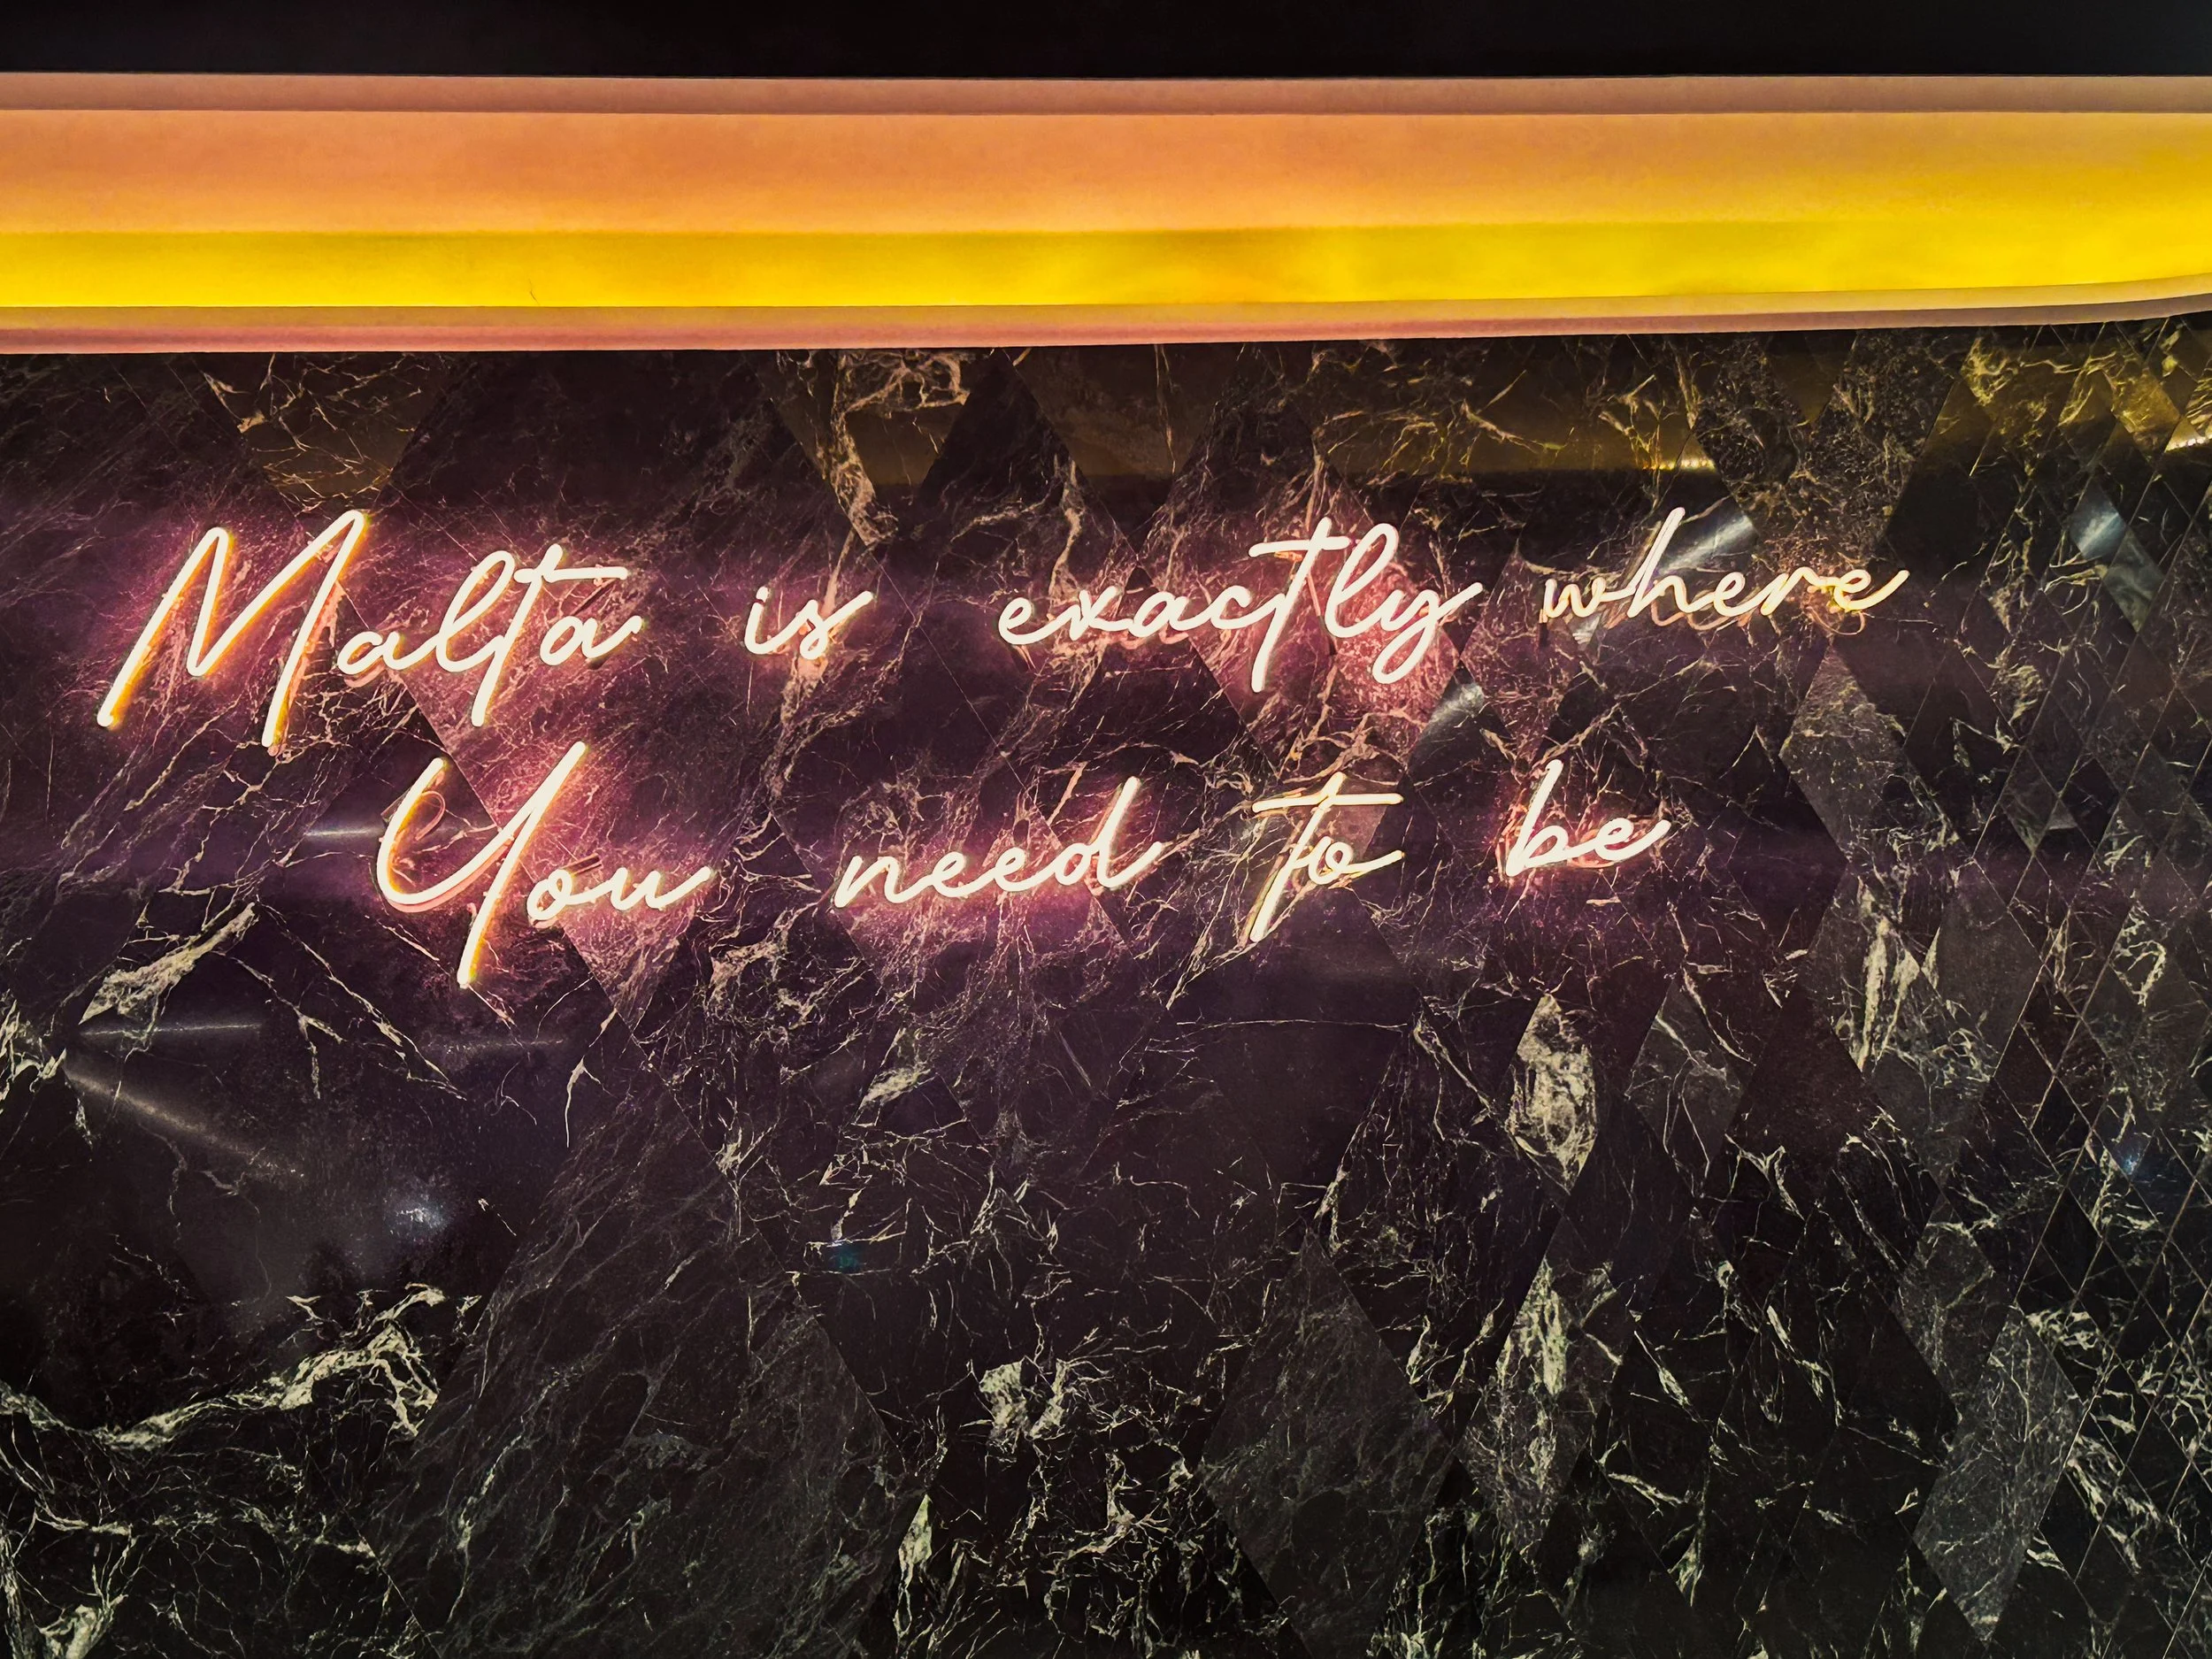 Malta is exactly where
You need to be